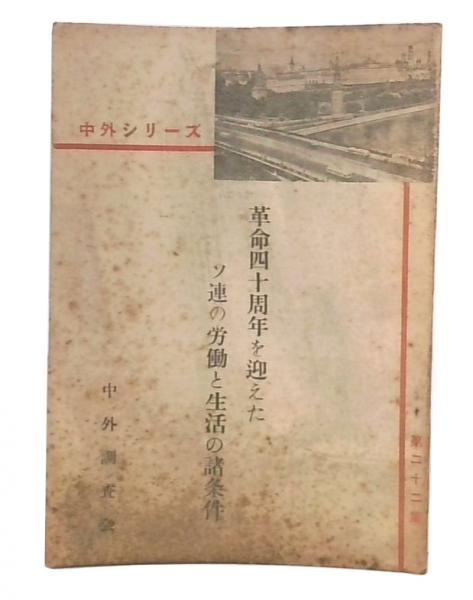 中外シリーズ
革命四十周年を迎えた
ソ連の労働と生活の諸条件
中外調査会
第二十二集